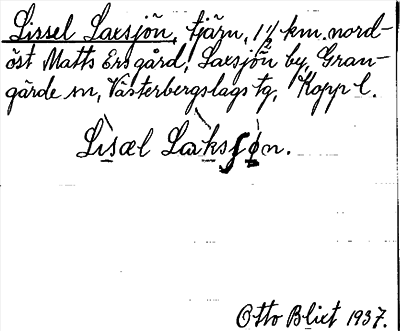 Lissel Laxsjön, tjärn, 1½ km. nord-
öst Matts Ersgård, Laxsjön by, Gran-
gärde sn, Västerbergslags tg, Kopp l.
Lisəl Laksjøn.
Otto Blixt 1937.